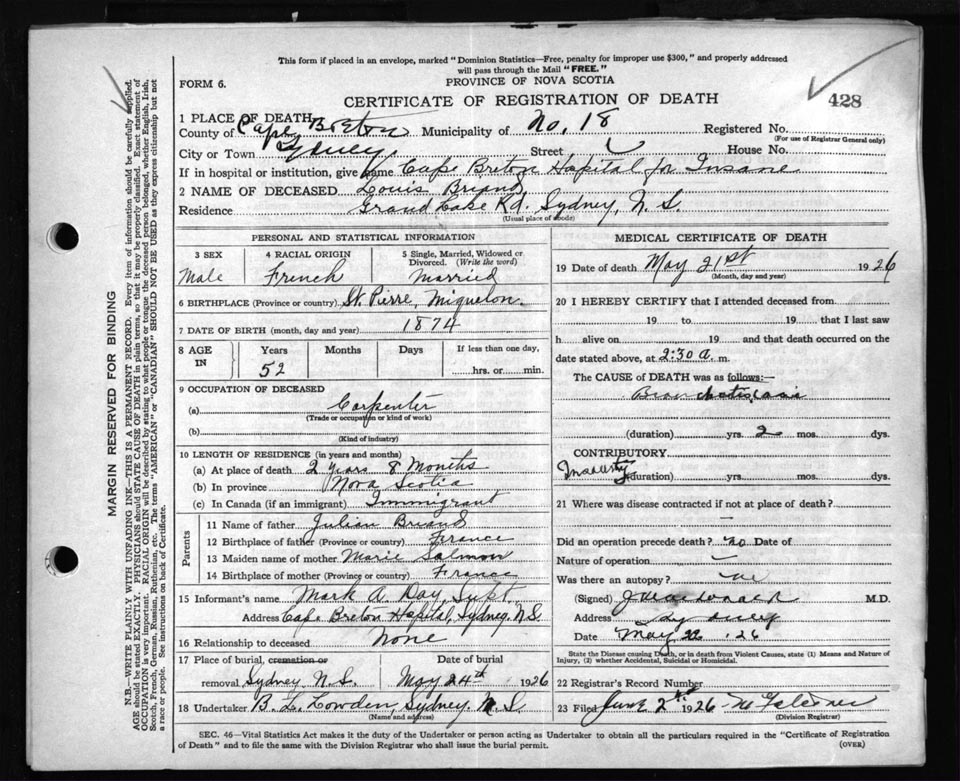 This form if placed in an envelope, marked "Dominion Statistics—Free, penalty for improper use $300," and properly addressed
will pass through the Mail "FREE."
FORM 6.
PROVINCE OF NOVA SCOTIA
CERTIFICATE OF REGISTRATION OF DEATH
428
1 PLACE OF DEATH
County of Cape Breton Municipality of No. 18 Registered No.
(For use of Registrar General only)
City or Town Sydney Street House No.
If in hospital or institution, give name Cape Breton Hospital for Insane
2 NAME OF DECEASED Louis Briand
Residence Grand Lake Rd. Sydney, N. S.
(Usual place of abode)
PERSONAL AND STATISTICAL INFORMATION
3 SEX
Male
4 RACIAL ORIGIN
French
5 Single, Married, Widowed or
Divorced. (Write the word)
Married
6 BIRTHPLACE (Province or country) St. Pierre, Miquelon.
7 DATE OF BIRTH (month, day and year) 1874
8 AGE
IN
Years
52
Months
Days
If less than one day,
hrs. or min.
9 OCCUPATION OF DECEASED
(a) Carpenter
(Trade or occupation or kind of work)
(b)
(Kind of industry)
10 LENGTH OF RESIDENCE (in years and months)
(a) At place of death 2 years 8 Months
(b) In province Nova Scotia
(c) In Canada (if an immigrant) Immigrant
Parents
11 Name of father Julian Briand
12 Birthplace of father (Province or country) France
13 Maiden name of mother Marie Salmon
14 Birthplace of mother (Province or country) France
15 Informant's name Mark A. Day, Supt.
Address Cape Breton Hospital, Sydney, N.S.
16 Relationship to deceased None
17 Place of burial, cremation or
removal Sydney N. S.
Date of burial
May 24th 1926
18 Undertaker B. L. Lowden, Sydney N. S.
(Name and address)
MEDICAL CERTIFICATE OF DEATH
19 Date of death May 21st 1926
(Month, day and year)
20 I HEREBY CERTIFY that I attended deceased from
19 to 19 that I last saw
h alive on 19 and that death occurred on the
date stated above, at 2:30 a. m.
The CAUSE of DEATH was as follows:—
(duration) yrs. 2 mos. dys.
CONTRIBUTORY
Insanity (duration) yrs. mos. dys.
21 Where was disease contracted if not at place of death?
—
Did an operation precede death? no Date of
Nature of operation —
Was there an autopsy? no
(Signed) M.D.
Address Sydney
Date May 22 . 26
State the Disease causing Death, or in death from Violent Causes, state (1) Means and Nature of
Injury, (2) whether Accidental, Suicidal or Homicidal.
22 Registrar's Record Number
23 Filed June 2nd 1926
(Division Registrar)
SEC. 46—Vital Statistics Act makes it the duty of the Undertaker or person acting as Undertaker to obtain all the particulars required in the "Certificate of Registration
of Death" and to file the same with the Division Registrar who shall issue the burial permit.
(OVER)
MARGIN RESERVED FOR BINDING
N.B.—WRITE PLAINLY WITH UNFADING INK—THIS IS A PERMANENT RECORD. Every item of information should be carefully supplied.
AGE should be stated EXACTLY. PHYSICIANS should STATE CAUSE OF DEATH in plain terms, so that it may be properly classified. Exact statement of
OCCUPATION is very important. RACIAL ORIGIN will be described by stating to what people or tongue the deceased person belonged, whether English, Irish,
Scotch, French, German, Russian, Ruthenian, etc. The terms "AMERICAN" or "CANADIAN" SHOULD NOT BE USED as they express citizenship but not
a race or people. See instructions on back of Certificate.